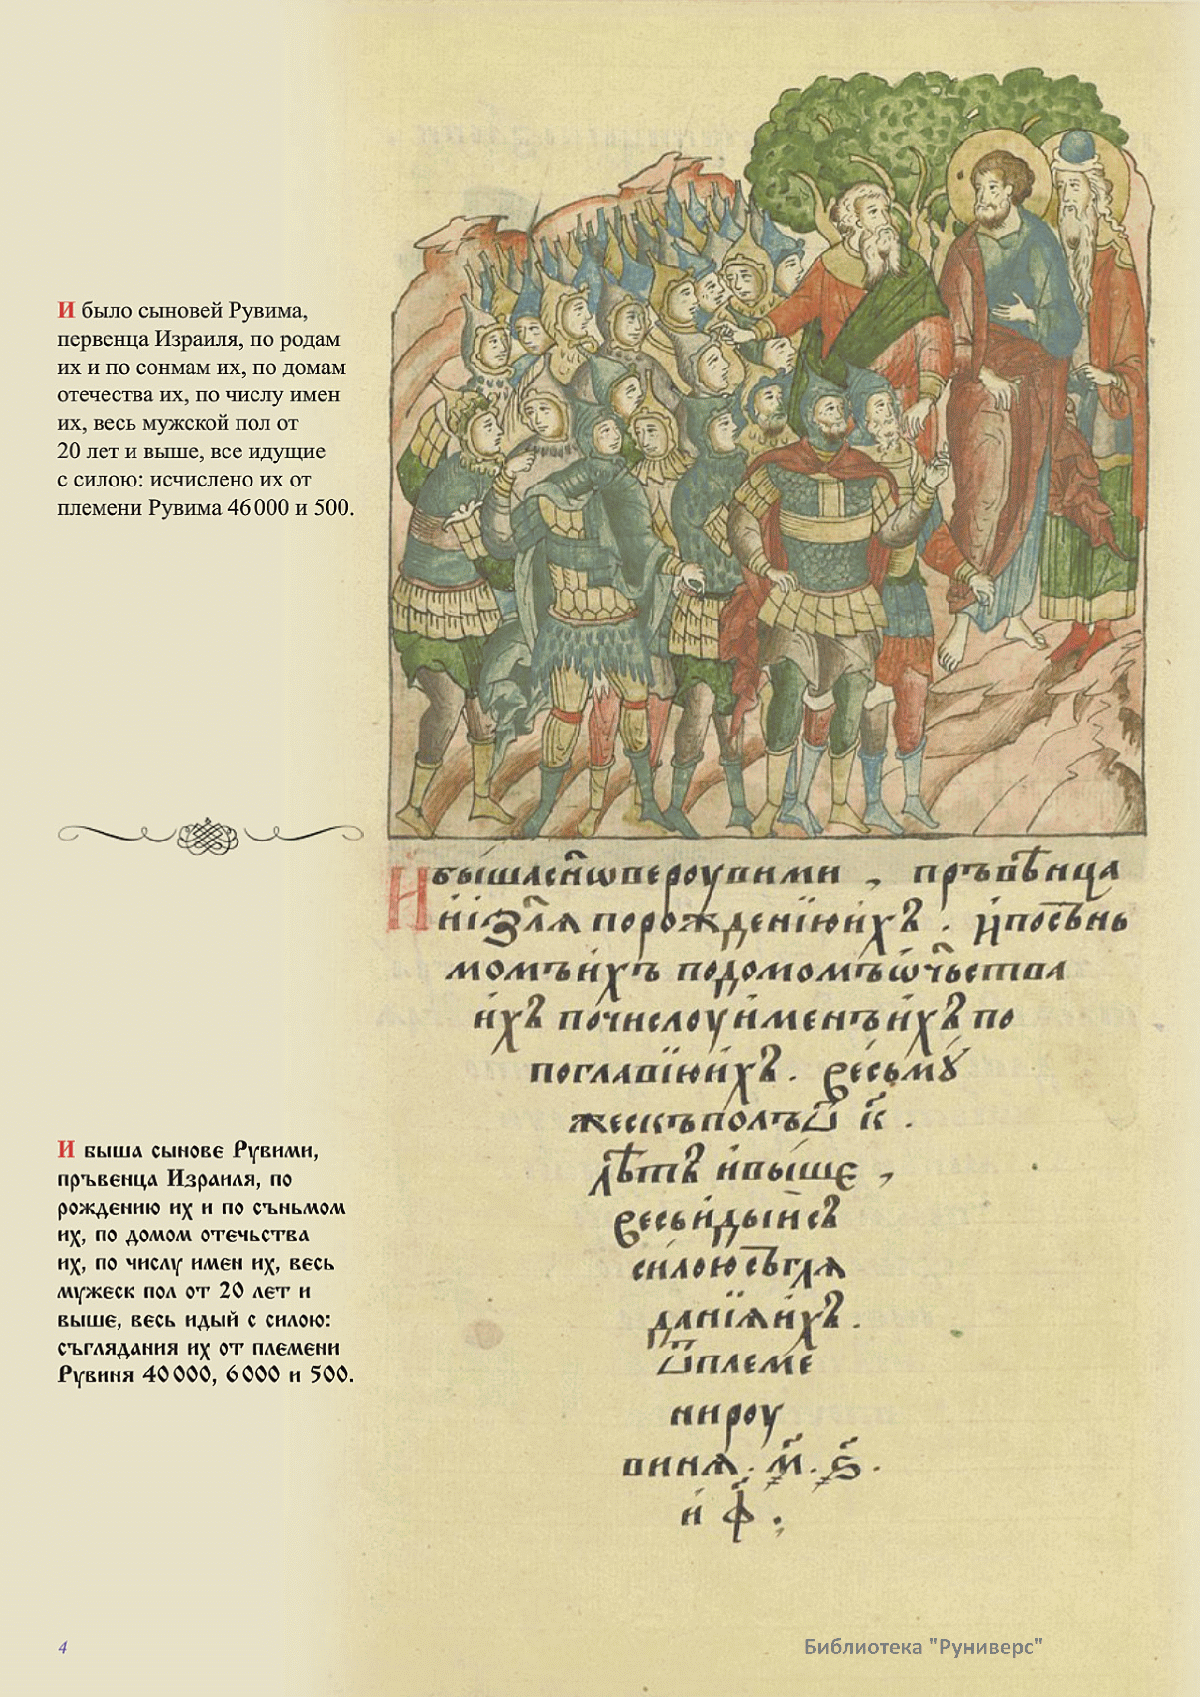 И было сыновей Рувима,
первенца Израиля, по родам
их и по сонмам их, по домам
отечества их, по числу имен
их, весь мужской пол от
20 лет и выше, все идущие
с силою: исчислено их от
племени Рувима 46 000 и 500.
И быша сынове Рувими,
пръвенца Израиля, по
рождению их и по съньмом
их, по домом отечьства
их, по числу имен их, весь
мужеск пол от 20 лет и
выше, весь идый с силою:
съглядания их от племени
Рувиня 40 000, 6 000 и 500.
И быша сн҃ове роувими , пръвѣнца
и і҆з҃ля по рожденїю и҆хъ . и҆ посънь
момъ и҆хъ по домомъ ѿч҃ьства
и҆хъ по числоу и҆менъ и҆хъ по
поглавїю и҆хъ . весь мꙋ
жескъ полъ ѿ к҃ .
лѣтъ и҆ выше ,
весь и҆дыи съ
силою съгля
данїя и҆хъ .
ѿ племе
ни роу
виня . ҂м҃ . ҂ѕ҃ .
и҆ ф҃ .
4
Библиотека "Руниверс"